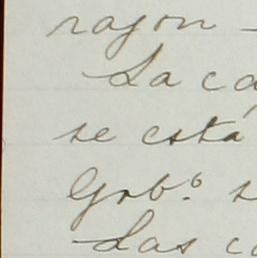 razon
La ca
se está
Gobº. s
Las co